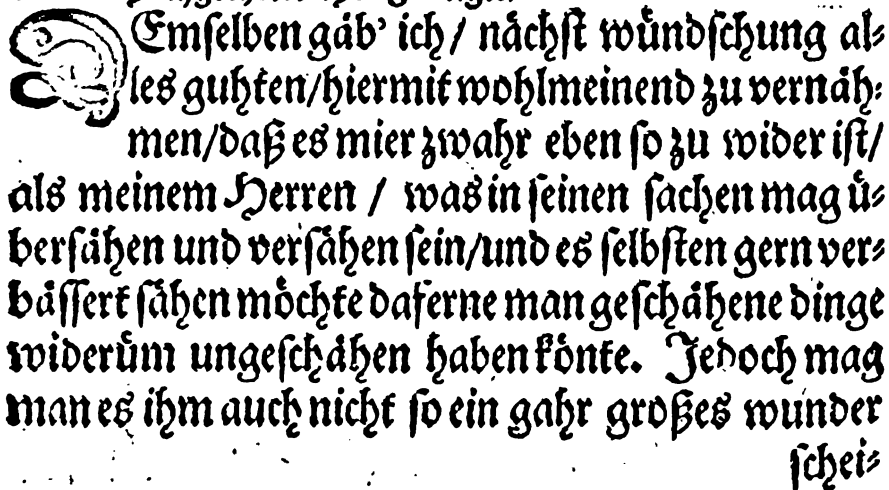 DEmſelben gaͤb’ ich / naͤchſt wuͤndſchung al⸗
les guhten/hiermit wohlmeinend zu vernaͤh⸗
men/daß es mier zwahr eben ſo zu wider iſt/
als meinem Herren / was in ſeinen ſachen mag uͤ⸗
berſaͤhen und verſaͤhen ſein/und es ſelbſten gern ver⸗
baͤſſert ſaͤhen moͤchte daferne man geſchaͤhene dinge
wideruͤm ungeſchaͤhen haben koͤnte. Jedoch mag
man es ihm auch nicht ſo ein gahr großes wunder
ſchei⸗